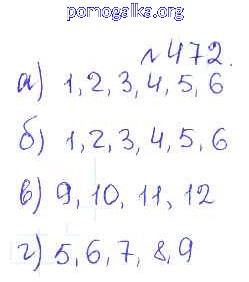 pomogalka.org
№472.
а) 1, 2, 3, 4, 5, 6
б) 1, 2, 3, 4, 5, 6
в) 9, 10, 11, 12
г) 5, 6, 7, 8, 9